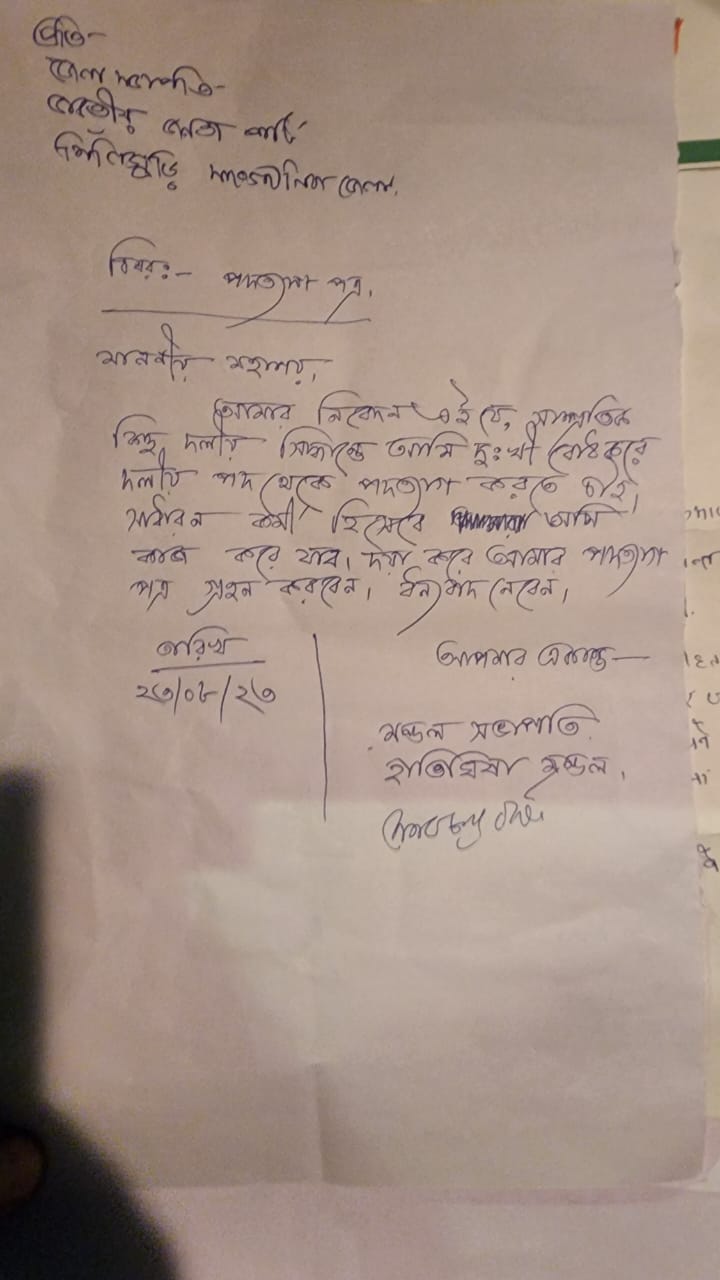 প্রতি-
জেলা সভাপতি-
ভারতীয় জনতা পার্টি
শিলিগুড়ি সাংগঠনিক জেলা.
বিষয়ঃ- পদত্যাগ পত্র.
মাননীয় মহাশয়,
আমার নিবেদন এই যে, সাম্প্রতিক
কিছু দলীয় সিদ্ধান্তে আমি দুঃখী বোধ করে
দলীয় পদ থেকে পদত্যাগ করতে চাই,
সাধারন কর্মী হিসেবে আমি
কাজ করে যাব। দয়া করে আমার পদত্যাগ
পত্র গ্রহন করবেন। ধন্যবাদ নেবেন,
তারিখ
২৩/০৮/২৩
আপনার একান্তে—
মন্ডল সভাপতি.
হাতিঘিষা মন্ডল,